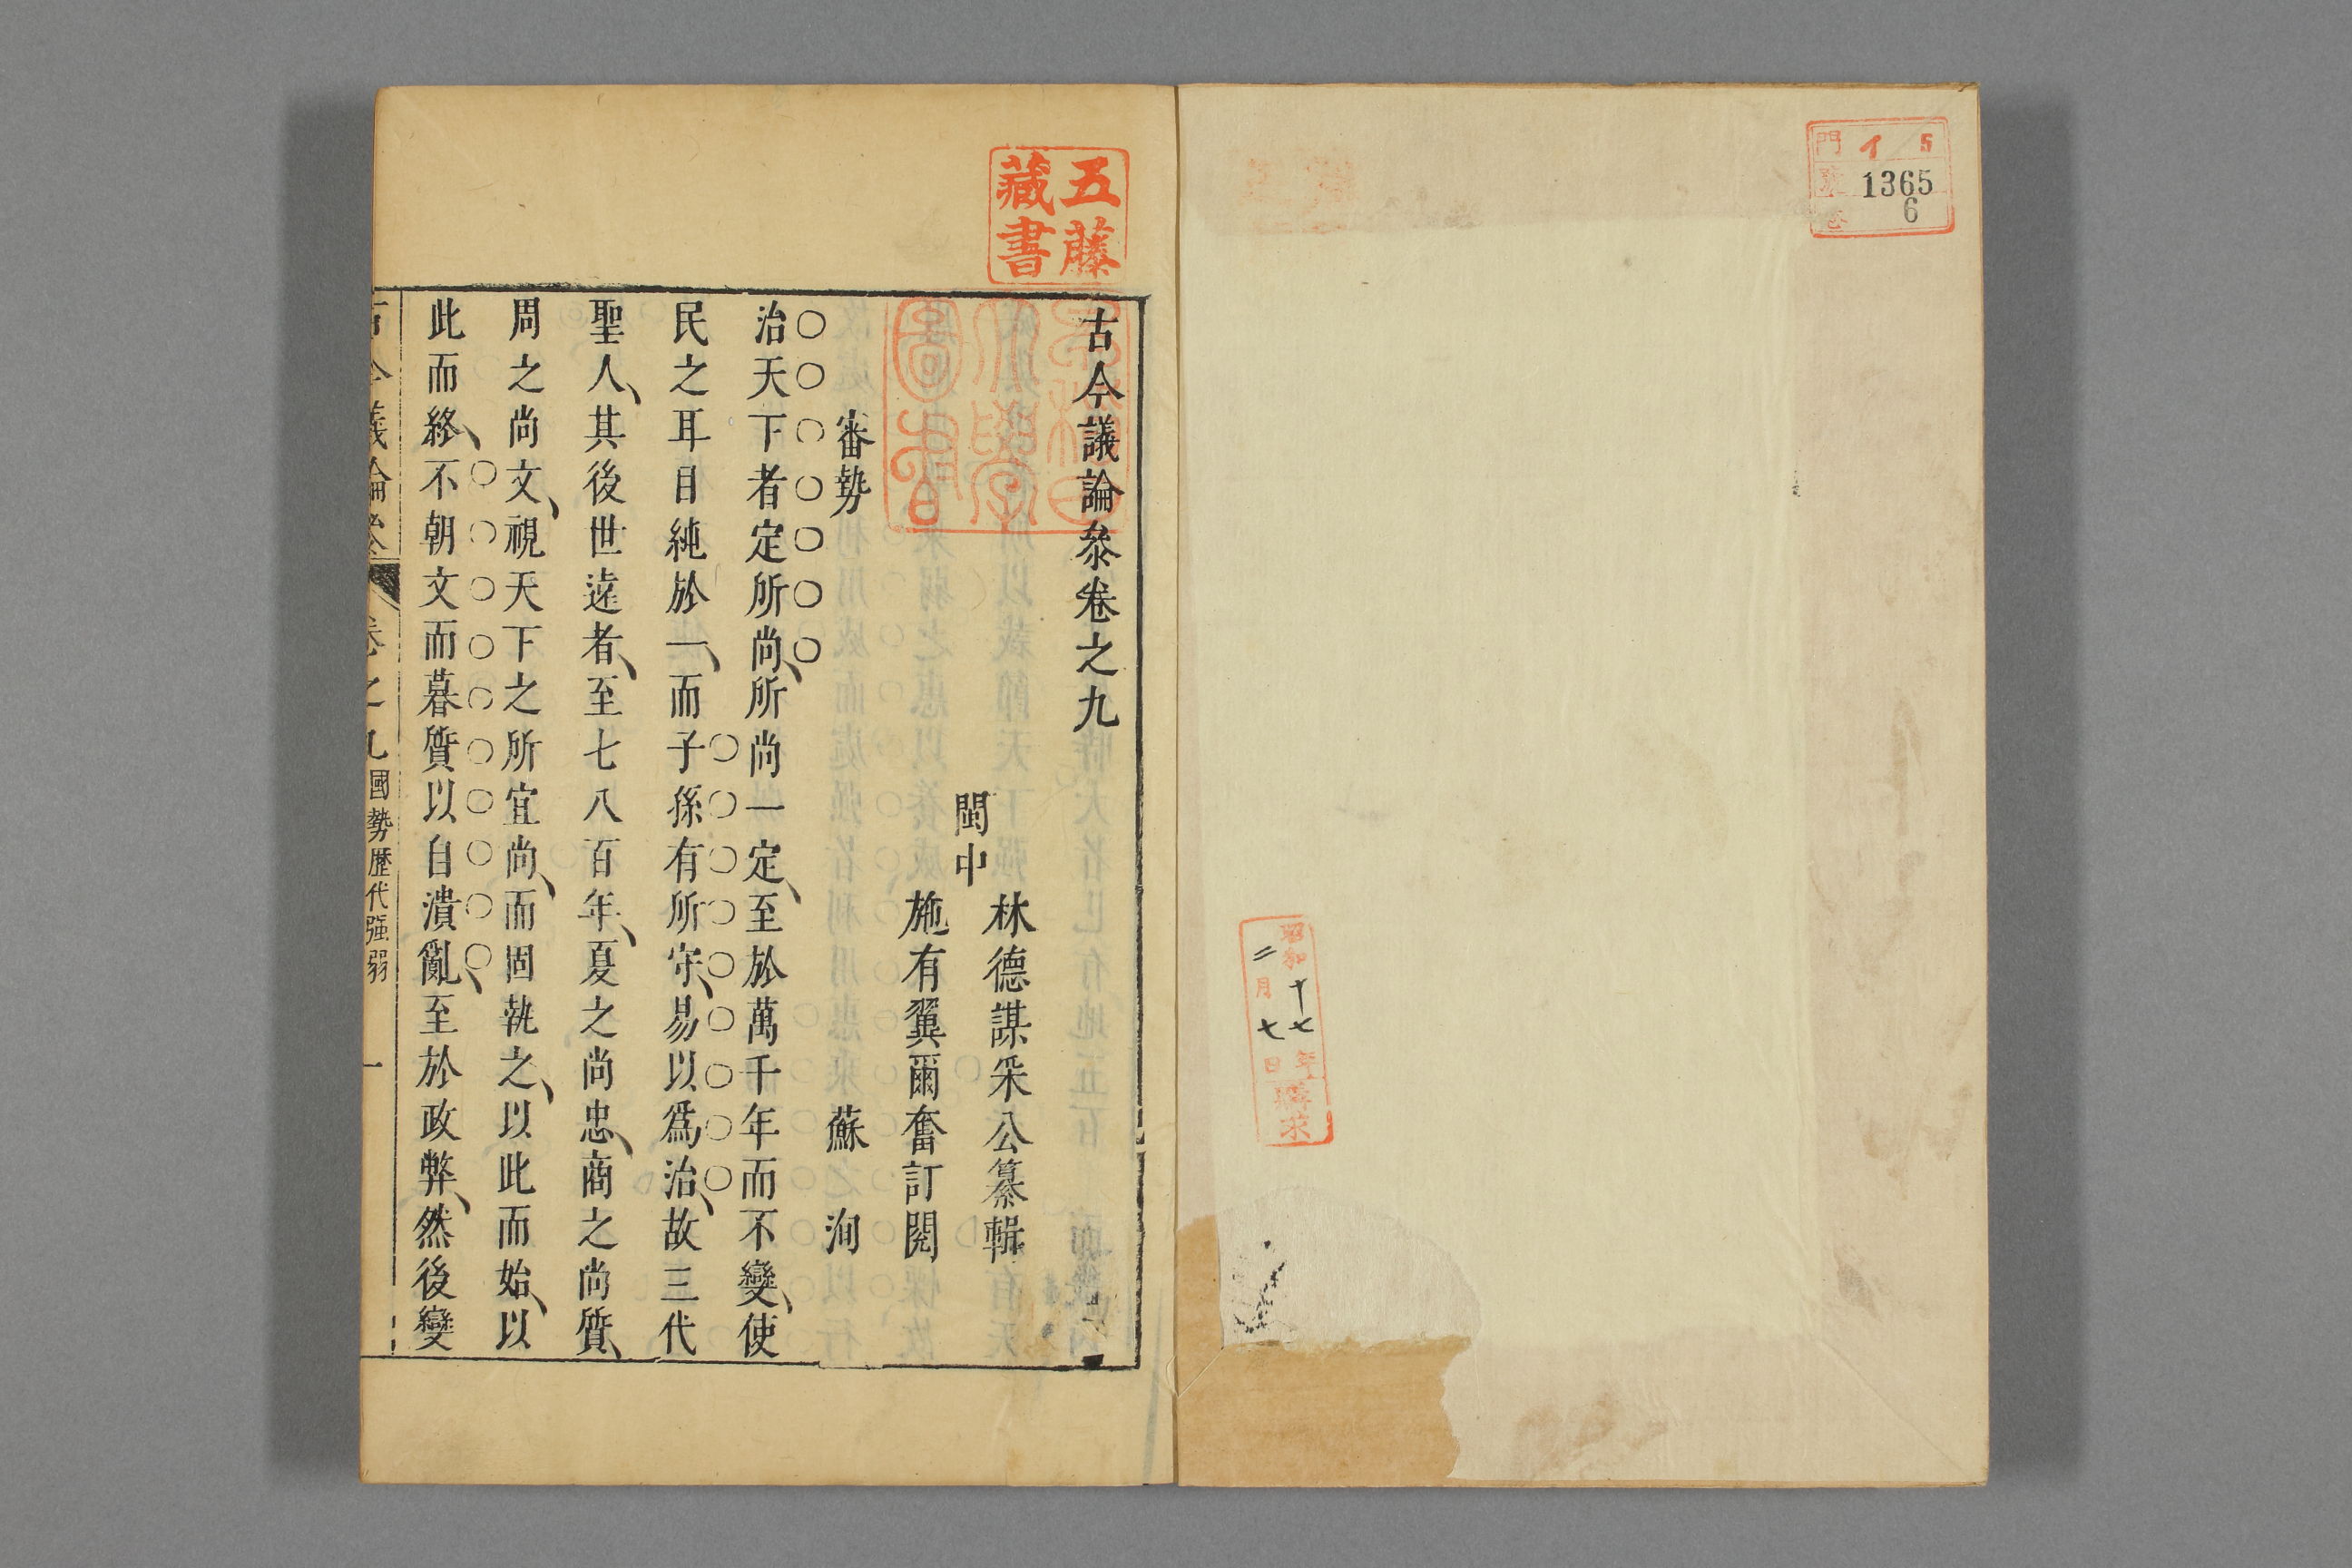 門 イ 5
1365
6
昭和十七年
二月七日
購求
五藤
藏書
早稲田
大學
圖書
古今議論叅卷之九
閩中
林德謀采公纂輯
施有翼爾奮訂閱
審勢 蘇洵
治天下者定所尚、所尚一定、至於萬千年而不變、使
民之耳目純於一、而子孫有所守、易以爲治、故三代
聖人、其後世遠者、至七八百年、夏之尚忠、商之尚質、
周之尚文、視天下之所宜尚、而固執之、以此而始、以
此而終、不朝文而暮質以自潰亂、至於政弊、然後變
古今議論叅 卷之九 國勢歷代强弱 一